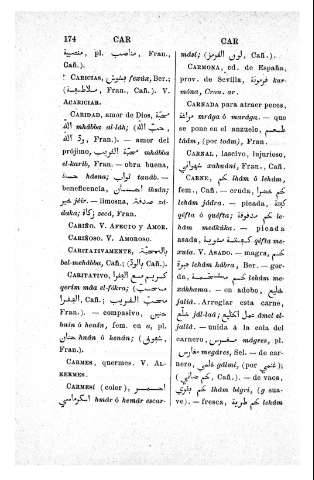 174 CAR
منصبية, pl. مناصب, Fran.,
Cañ.).
CARICIAS, فشوش fexúx, Ber.;
(ملاطفية, Cañ., Fran.). V.
ACARICIAR.
CARIDAD, amor de Dios, محبّة
الله mhábba al-láh; (حبّ الله,
ودّ الله, Fran.). — amor del
prójimo, محبّة القريب mhábba
el-karíb, Fran. — obra buena,
حسنة hásna; ثواب tsuáb. —
beneficencia, احسان ihsán;
خير jéir. — limosna, صدقة sá-
daka; زكاة zecá, Fran.
CARIÑO. V. AFECTO Y AMOR.
CARIÑOSO. V. AMOROSO.
CARITATIVAMENTE, بالمحبّة
bel-mehábba, Cañ.; (بالودّ, Cañ.).
CARITATIVO, كريم مع الفقرا
qerím mâa el-fókra; (محسب
الفقرا, Cañ.; محبّ القريب,
Fran.). — compasivo, حنين
hanín ó henán, fem. en a, pl.
حنان hnán ó henán; (شفوق,
Fran.).
CARMES, quermes. V. AL-
KERMES.
CARMESÍ (color), احمر
اسكرماسي hmár ó hemár escar-
CAR
mási; (لون القرمز, Cañ.).
CARMONA, cd. de España,
prov. de Sevilla, قرمونة kar-
móna, Cron. ar.
CARNADA para atraer peces,
مراقة mráqa ó maráqa. — que
se pone en el anzuelo, طعم
tâám, (por tôám), Fran.
CARNAL, lascivo, lujurioso,
شهواني xahuáni, Fran., Cañ.
CARNE, لحم lhám ó lehám,
fem., Cañ. — cruda, لحم خضرا
lehám jádra. — picada, كفتة
qúfta ó quáfta; لحم مدقوقة le-
hám medkúka. — picada
asada, كفتة مشوية qúfta me-
xuía. V. ASADO. — magra, لحم
حبرة lehám hábra, Ber. — gor-
da, لحم مشحمة lehám me-
xáhhema. — en adobo, خليع
jalíâ. Arreglar esta carne,
خلع jál-laâ; عمل الخليع âmel el-
jalíâ. — unida á la cola del
carnero, مغرس mágres, pl.
مغارس megáres, Sel. — de car-
nero, غلمي gálmi, (por غنمي;
لحم ضاني, Cañ.). — de vaca,
لحم بڭري lhám bágri, (g sua-
ve). — fresca, لحم طرية lehám